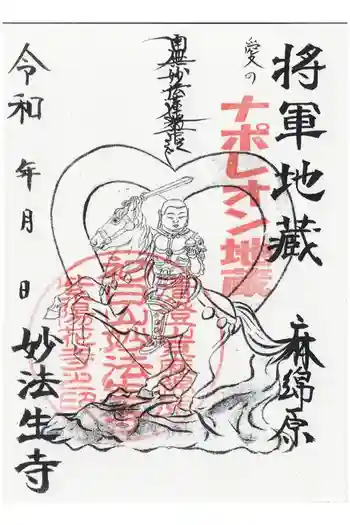 将軍地蔵
麻綿原
愛の
ナポレオン地蔵
南無妙法蓮華経
令和 年 月 日
妙法生寺